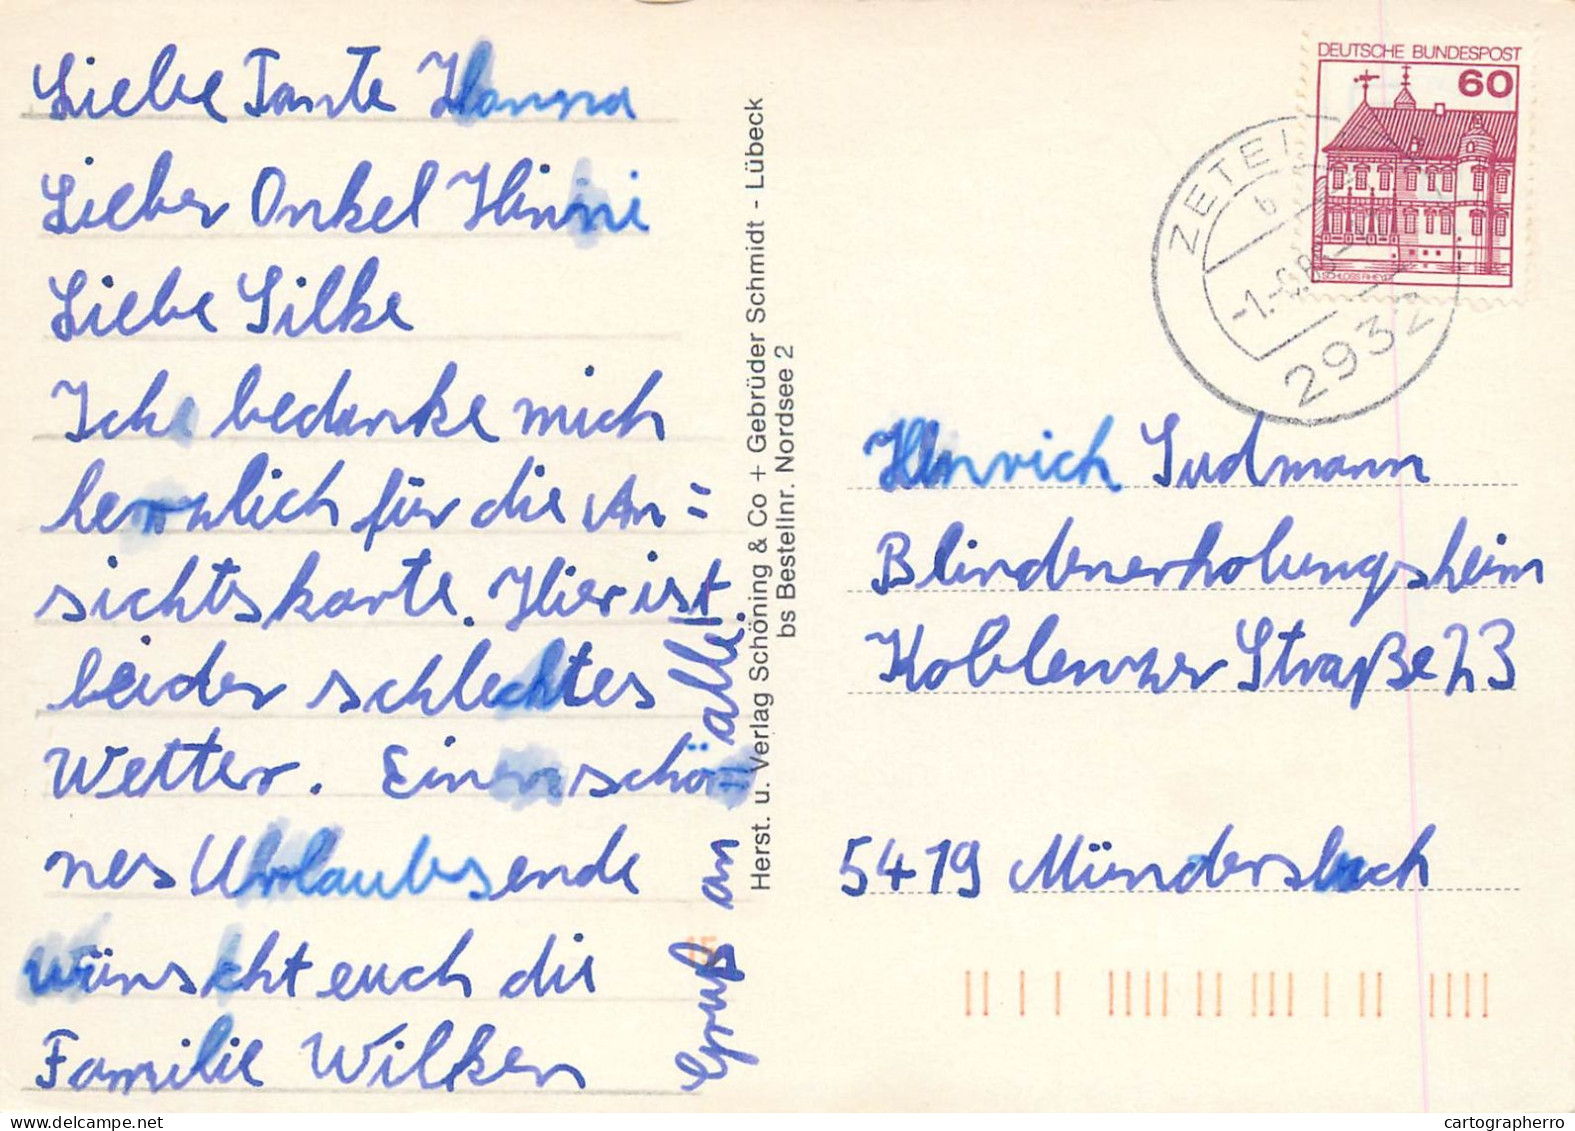 Liebe Tante Hanna
Lieber Onkel Hinni
Liebe Silke
Ich bedanke mich
herzlich für die An=
sichtskarte. Hier ist
leider schlechtes
Wetter. Einen schö=
nes Urlaubsende
wünscht euch die
Familie Wilken
Gruß an alle!
Herst. u. Verlag Schöning & Co + Gebrüder Schmidt - Lübeck
bs Bestellnr. Nordsee 2
DEUTSCHE BUNDESPOST
60
SCHLOSS RHEYDT
ZETEL
b
-1.-9.8
2932
Hinrich Sudmann
Blindenerholungsheim
Koblenzer Straße 23
5419 Mündersbach
15
cartographerro